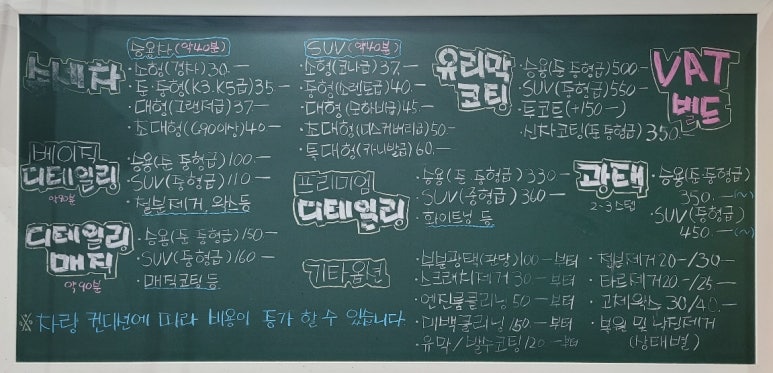 손세차
승용차(약40분)
·소형(경차)30.—
·준·중형(K3.K5급)35—
·대형(그랜저급)37—
·초대형(G90이상)40—
SUV(약40분)
·소형(코나급)37.—
·중형(쏘렌토급)40.—
·대형(모하비급)45.—
·초대형(디스커버리급)50—
·특대형(카니발급)60.—
유리막
코팅
·승용(준중형급)500—
·SUV(중형급)550—
·투코트(+150—)
·신차코팅(준중형급)350.—
VAT
별도
베이직
디테일링
약90분
·승용(준중형급)100.—
·SUV(중형급)110—
·철분제거 왁스등
프리미엄
디테일링
·승용(준중형급)330—
·SUV(중형급)360—
·화이트닝 등
광택
2-3스텝
·승용(준중형급)
350.—(~)
·SUV(중형급)
450.—(~)
디테일링
매직
약90분
·승용(준중형급)150—
·SUV(중형급)160—
·매직코팅등
기타옵션
·부분광택(판당)100—부터
·스크래치제거 30—부터
·엔진룸클리닝 50—부터
·테백클리닝 150—부터
·유막/발수코팅 120—부터
·철분제거 20-/30—
·타르제거 20-/25—
·고체왁스 30/40.—
·복원 및 낙진제거
(상태별)
※ 차량 컨디션에 따라 비용이 증가 할 수 있습니다